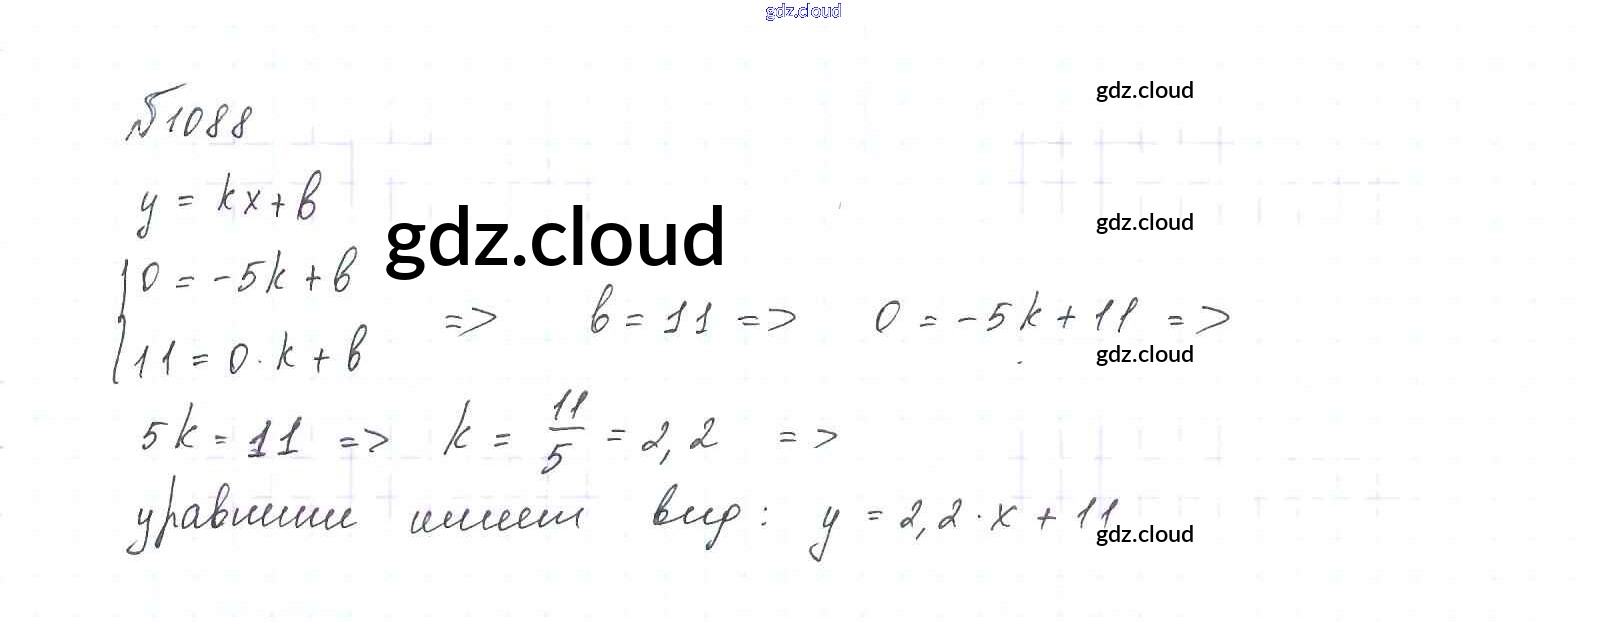 gdz.cloud
№1088
gdz.cloud
y = kx + b
gdz.cloud
gdz.cloud
0 = -5k + b
11 = 0 · k + b
=> b = 11 => 0 = -5k + 11 =>
gdz.cloud
5k = 11 => k = 11/5 = 2,2 =>
уравнение имеет вид: y = 2,2 · x + 11
gdz.cloud